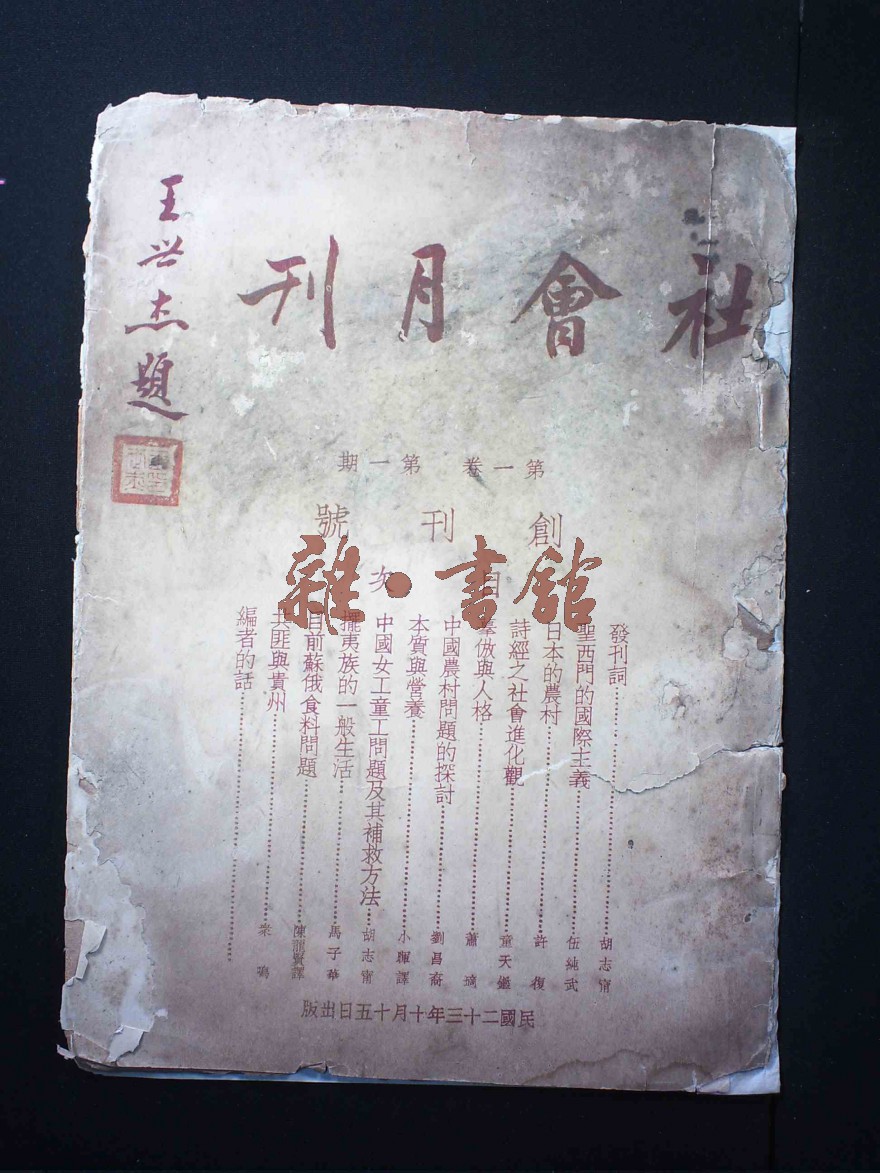 社會月刊
王兴杰題
第一卷 第一期
創刊號
目次
發刊詞 胡志甯
聖西門的國際主義 伍純武
日本的農村 許復
詩經之社會進化觀 童天鑑
羣倣與人格 蕭
中國農村問題的探討 劉昌裔
本質與營養 小暉譯
中國女工童工問題及其補救方法 胡志甯
擺夷族的一般生活 馬子華
目前蘇俄食料問題 陳龍賢譯
共匪與貴州 鳴
編者的話
民國二十三年十月十五日出版
雜·書館